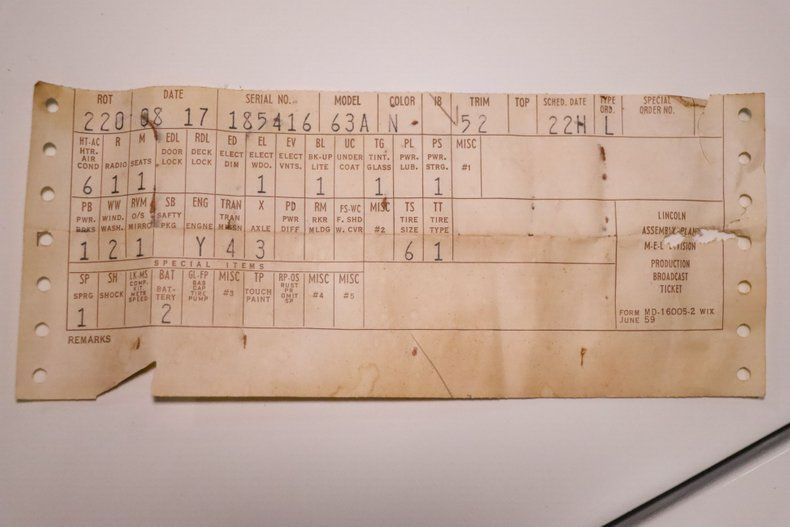 ROT DATE SERIAL NO. MODEL COLOR IB TRIM TOP SCHED. DATE TYPE ORD. SPECIAL ORDER NO.
220 08 17 185416 63A N 52 22H L
HT-AC R M EDL RDL ED EL EV BL UC TG PL PS MISC
HTR. AIR COND RADIO SEATS DOOR LOCK DECK LOCK ELECT DIM ELECT WDO. ELECT VNTS. BK-UP LITE UNDER COAT TINT. GLASS PWR. LUB. PWR. STRG. #1
6 1 1 1 1 1 1
PB WW RVM SB ENG TRAN X PD RM FS-WC MISC TS TT
PWR. BRKS WIND. WASH. O/S MIRRO SAFTY PKG ENGINE TRAN AXLE PWR DIFF RKR MLDG F. SHD W. CVR #2 TIRE SIZE TIRE TYPE
1 2 1 Y 4 3 6 1
SPECIAL ITEMS
SP SH LK-MS BAT GL-FP MISC TP RP-OS MISC MISC
SPRG SHOCK COMP. KIT. METR SPEED BAT-TERY BAS CAP TIRE PUMP #3 TOUCH PAINT RUST PR OMIT SP #4 #5
1 2
REMARKS
LINCOLN
ASSEMBLY PLANT
M-E-L DIVISION
PRODUCTION
BROADCAST
TICKET
FORM MD-16005-2 WIX
JUNE 59